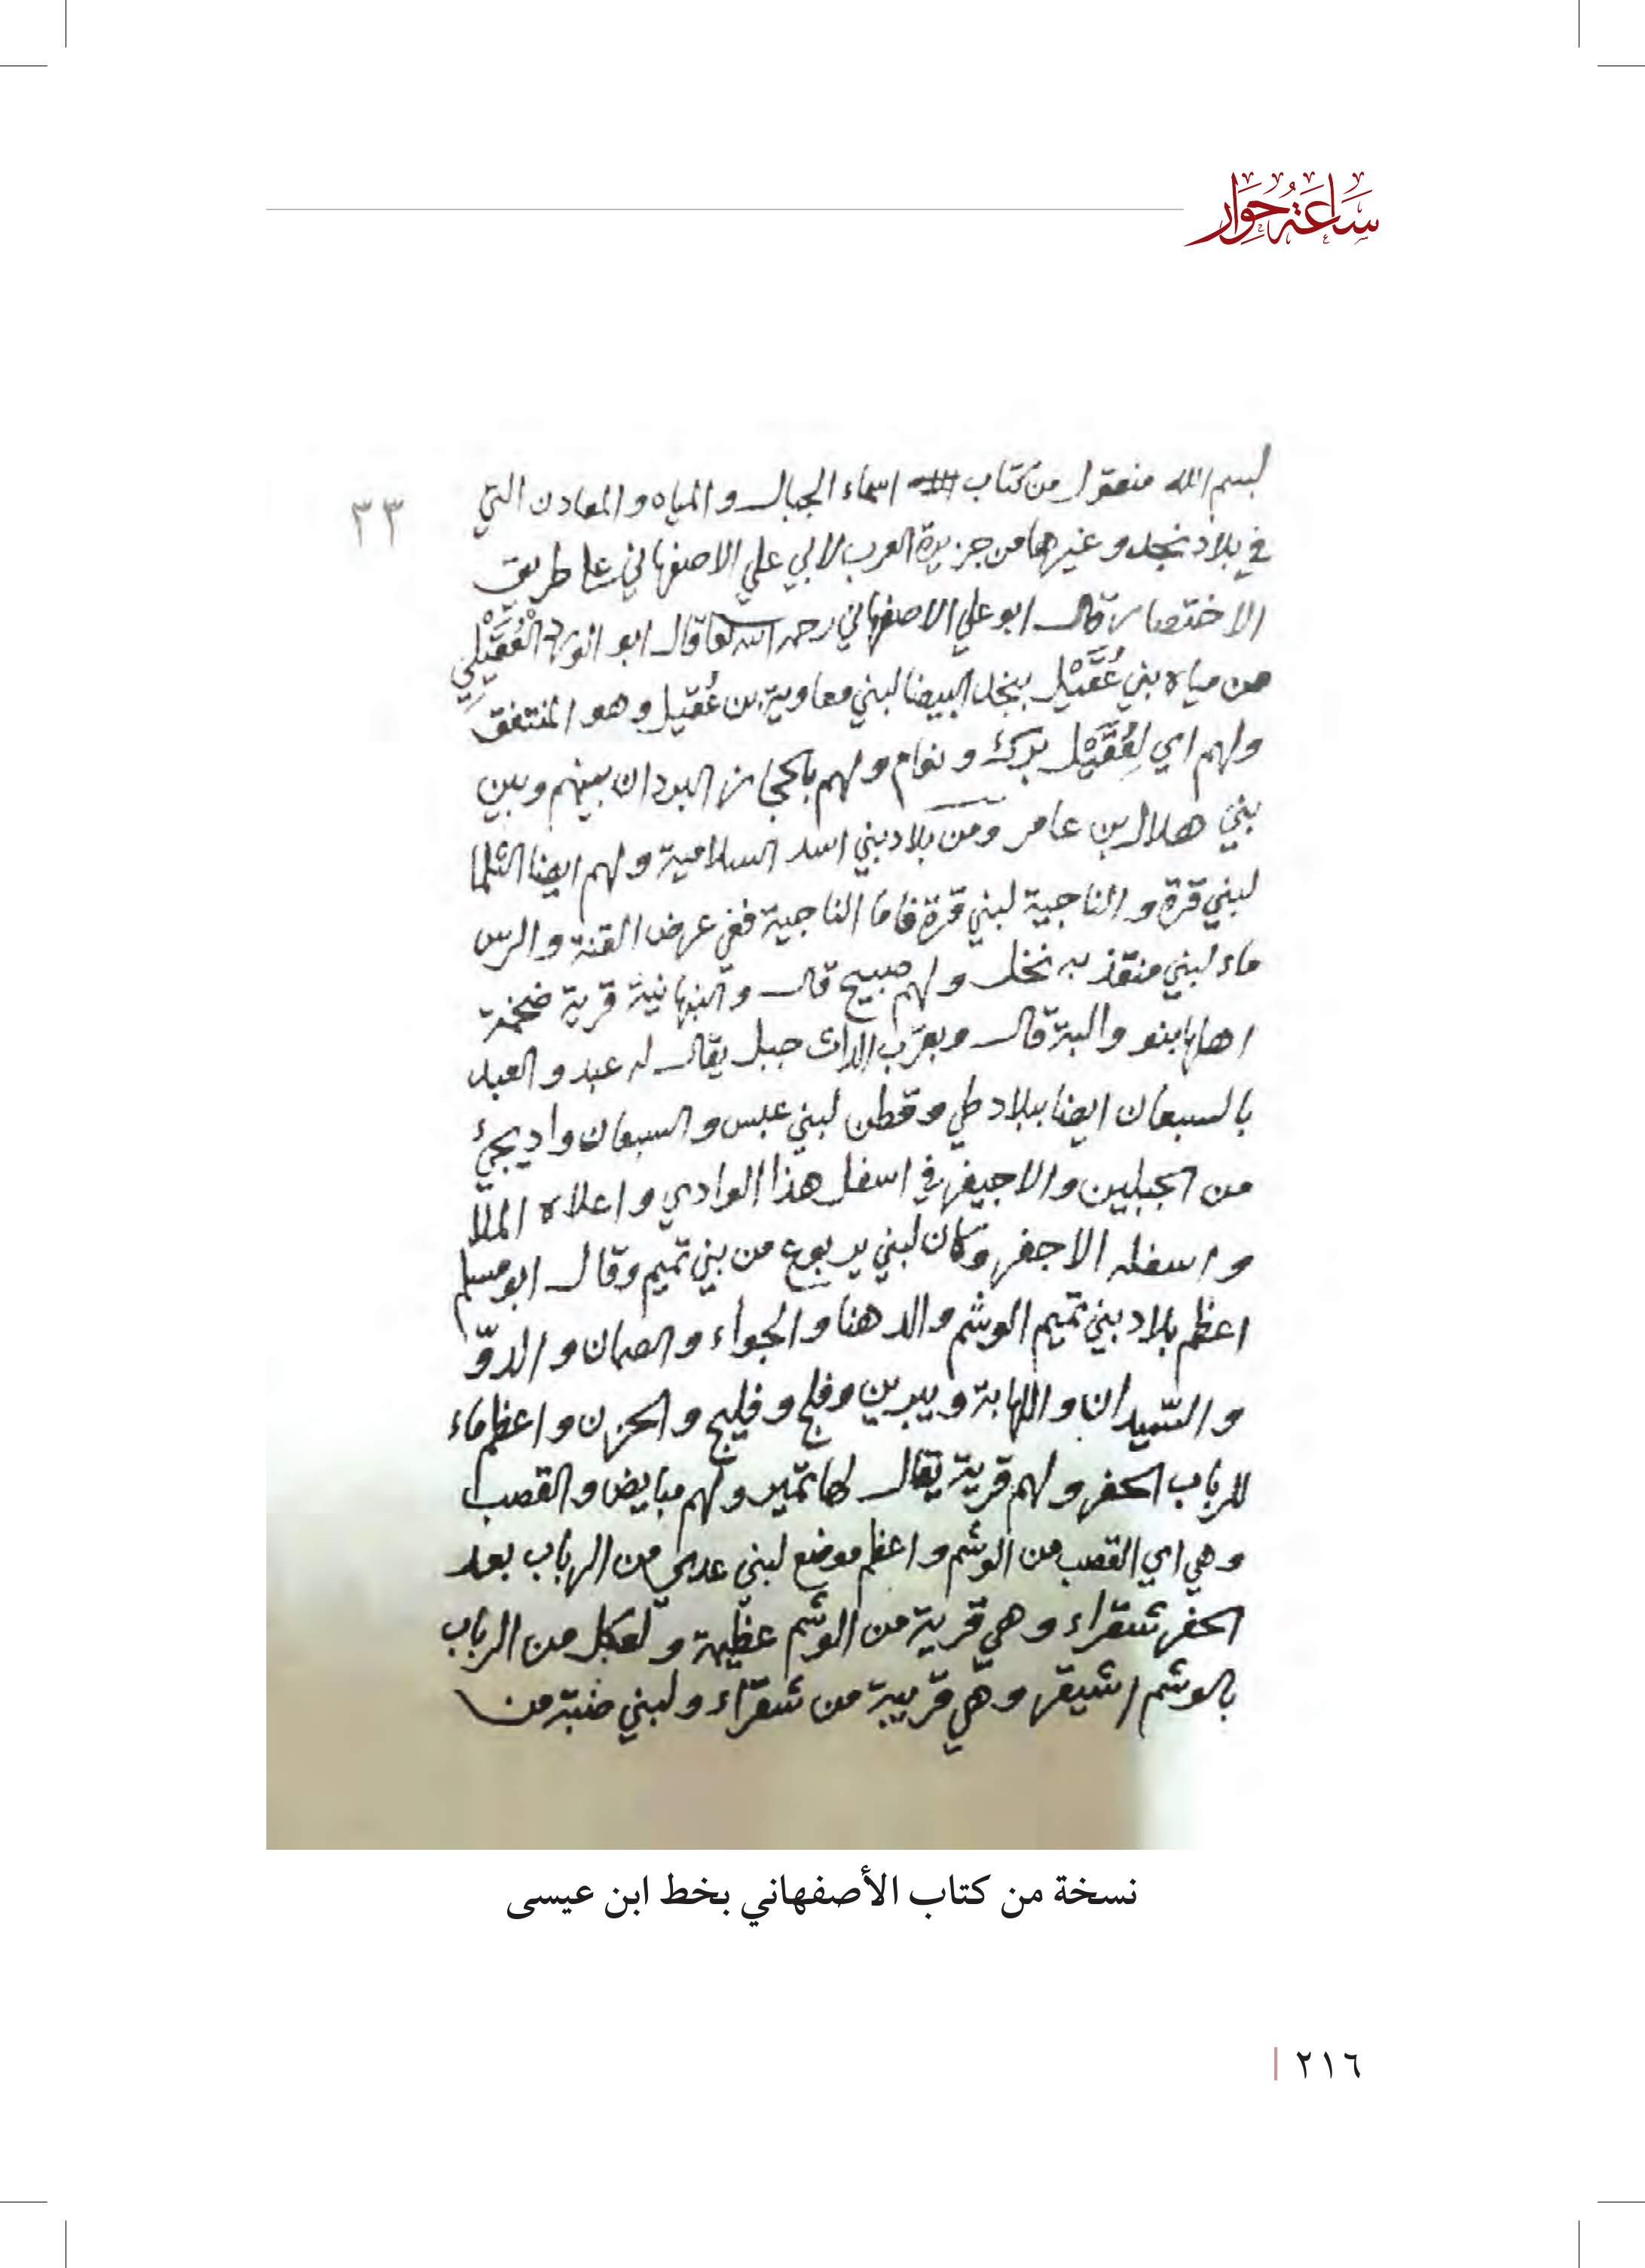 سَاعَة حِوَار
٣٣
بسم الله منقول من كتاب اسماء الجبال والمياه والمعادن التي
في بلاد نجد وغيرها من جزيرة العرب لابي علي الاصفهاني على طريق
الاختصار قال ابو علي الاصفهاني رحمه الله تعا قال ابو العُقَيْلي
من مياه بني عُقَيْل بنجد البيضا لبني معاوية بن عُقيل وهو المنتفق
ولهم اي لِعُقَيْل برك ونعام ولهم بالحجاز البردان بينهم وبين
بني هلال بن عامر ومن بلاد بني اسد السلامية ولهم ايضا الثلما
لبني قرة والناجية لبني قرة فاما الناجية ففي عرض القنة والرس
ماء لبني منقذ به نخل ولهم صبيح قال والنبهانية قرية ضخمة
اهلها بنو والبة قال وبغرب الداث جبل يقال له عبد والعبد
بالسبعان ايضا ببلاد طي وقطن لبني عبس والسبعان واد يجئ
من الجبلين والاجيفر في اسفل هذا الوادي واعلاه الملا
واسفله الاجفر وكان لبني يربوع من بني تميم وقال ابو مسلم
اعظم بلاد بني تميم الوشم والدهنا والجواء والصمان والدوّ
والسّيدان واللهابة ويبرين وفلج وفليج والحزن واعظم ماء
للرباب الحفر ولهم قرية يقال لها تمير ولهم مبايض والقصب
وهي اي القصب من الوشم واعظم موضع لبني عدي من الرباب بعد
الحفر شقراء وهي قرية من الوشم عظيمة ولعكل من الرباب
بالوشم اشيقر وهي قريبة من شقراء ولبني ضبة من
نسخة من كتاب الأصفهاني بخط ابن عيسى
٢١٦